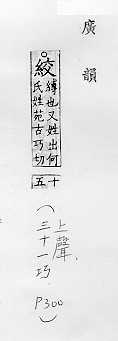 廣韻
○絞 縛也又姓出何
氏姓苑古巧切
十五
(上聲.
三十一巧.
P300)